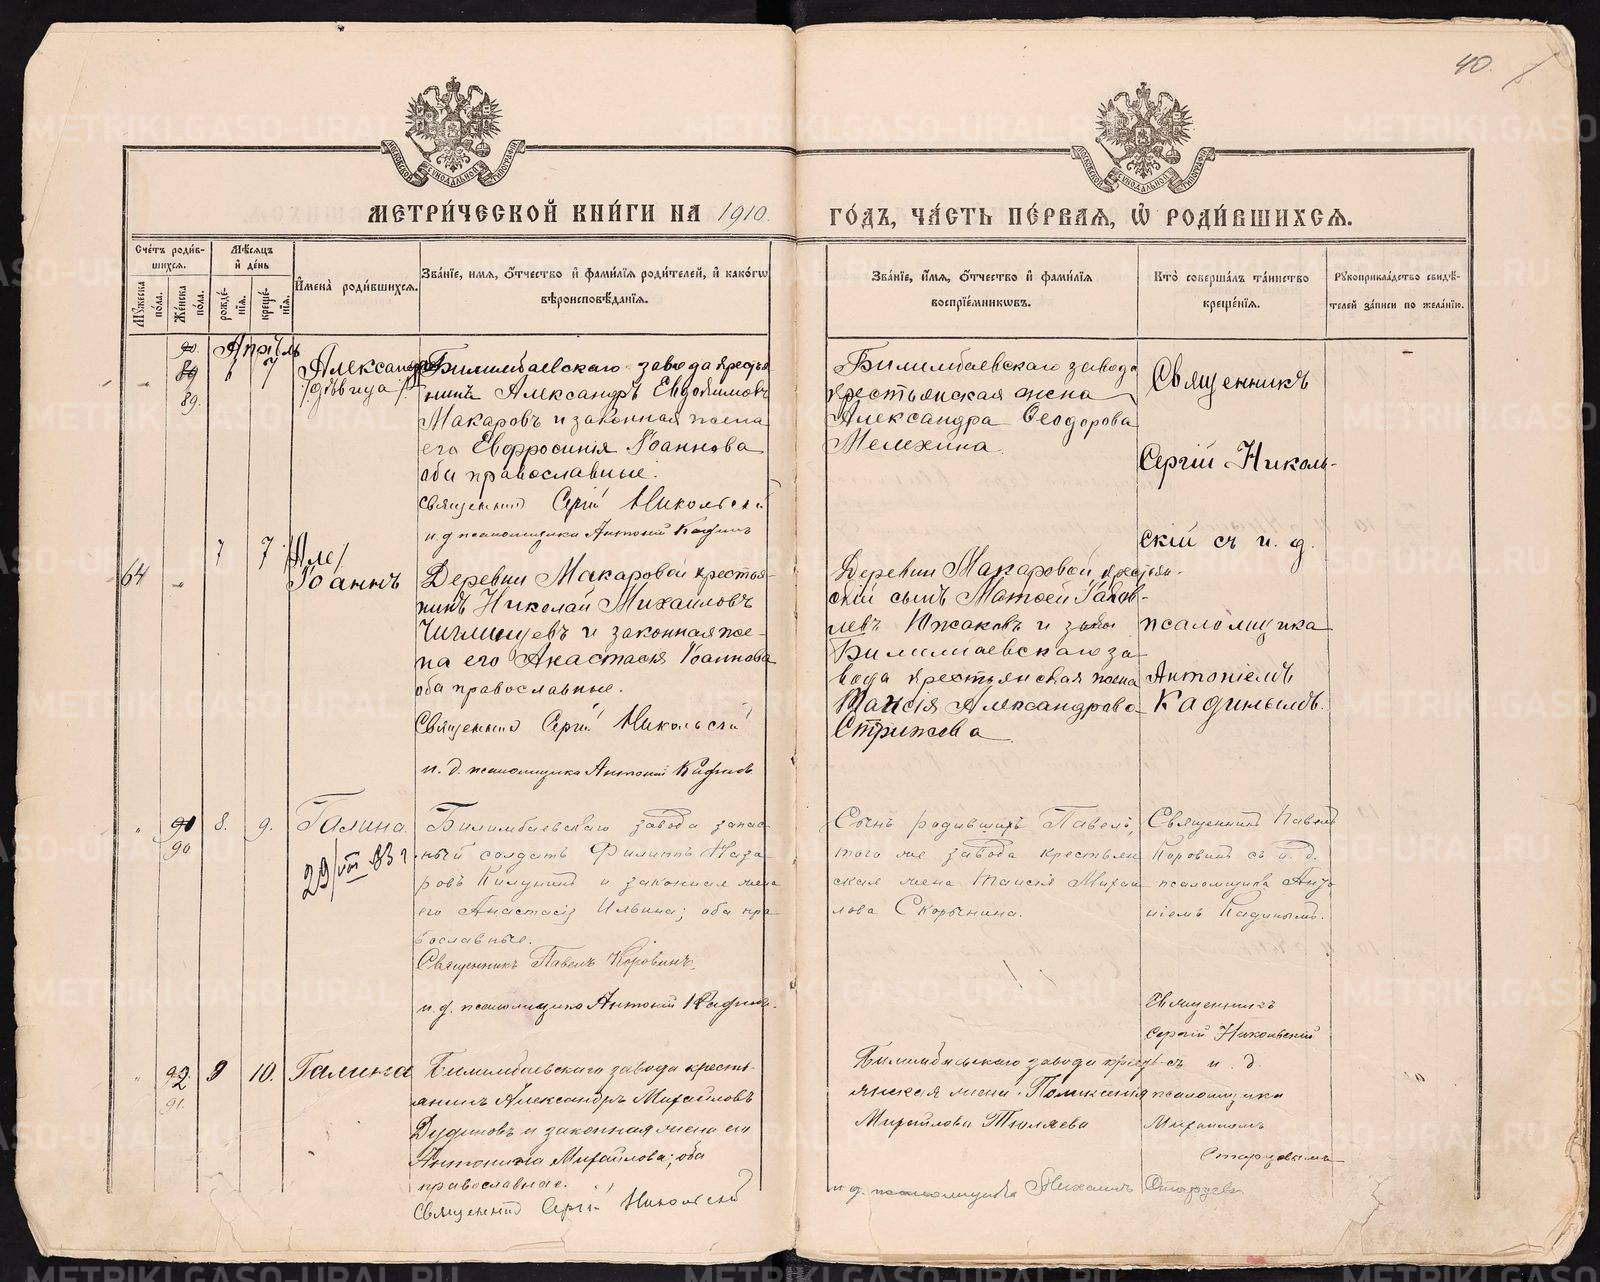 40.
МОСКОВСКОЙ СѴНОДАЛЬНОЙ ТИПОГРАФІИ
МОСКОВСКОЙ СѴНОДАЛЬНОЙ ТИПОГРАФІИ
МЕТРИ́ЧЕСКОЙ КНИ́ГИ НА 1910
ГО́ДЪ, ЧА́СТЬ ПЕ́РВАѦ, Ѡ҆ РОДИ́ВШИХСѦ.
Сче́тъ роди́в-
шихсѧ.
Мꙋ́жеска по́ла.
Же́нска по́ла.
Мѣ́сѧцъ
и҆ де́нь
рожде́-
нїѧ.
креще́-
нїѧ.
И҆мена̀ роди́вшихсѧ.
Зва́нїе, и҆мѧ, ѻ҆́тчество и҆ фамилїѧ роди́телей, и҆ како́гѡ
вѣроисповѣ́данїѧ.
Зва́нїе, и҆́мѧ, ѻ҆́тчество и҆ фами́лїѧ
воспрїе́мникѡвъ.
Кто̀ соверша́лъ та́инство
креще́нїѧ.
Рꙋкоприкла́дство свидѣ́-
телей за́писи по жела́нїю.
Апрѣль
90
89
89.
6 7
Александра
/дѣвица/
Билимбаевскаго завода кресть-
янинъ Александръ Евдокимовъ
Макаровъ и законная жена
его Евфросинія Іоаннова
оба православные.
Священник Сергій Никольскій
и. д. псаломщика Антоній Кадинъ
Билимбаевскаго завода
крестьянская жена
Александра Ѳеодорова
Мелехина.
Священникъ
Сергій Николь-
скій съ и. д.
псаломщика
Антоніемъ
Кадинымъ.
64 " 7 7
/Але/
Іоаннъ
Деревни Макаровой крестья-
нинъ Николай Михаиловъ
Чиглинцевъ и законная же-
на его Анастасія Іоаннова
оба православные.
Священник Сергій Никольскій
и. д. псаломщика Антоній Кадинъ
Деревни Макаровой крестьян-
скій сынъ Матѳей Іаков-
левъ Южаковъ и
Билимбаевскаго за
вода крестьянская жена
Таисія Александрова
Стрижева
" 91
90
8. 9. Галина.
29/VIII 83 г
Билимбаевскаго завода запас-
ный солдатъ Филиппъ Наза-
ровъ Килунинъ и законная жена
его Анастасія Ильина; оба пра
вославные.
Священникъ Павелъ Коровинъ.
и. д. псаломщика Антоній Кадинъ.
Сынъ родившихъ Павелъ,
того же завода крестьян
ская жена Таисія Михаи
лова Скорынина.
Священникъ Павелъ
Коровинъ съ и. д.
псаломщика Анто
ніемъ Кадинымъ.
" 92
91.
9 10. Галина
Билимбаевскаго завода кресть-
янинъ Александръ Михайловъ
Дудиновъ и законная жена его
Антонина Михайлова; оба
православные.
Священник Сергій Никольскій
Билимбаевскаго завода крест-
янская жена Поликсенія
Михайлова Тюляева
Священникъ
Сергій Никольскій
съ и. д.
псаломщика
Михаиломъ
Старцевымъ
и. д. псаломщика Михаилъ Старцевъ